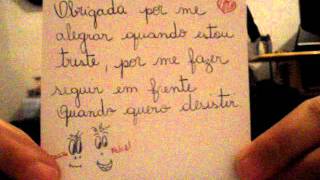 Obrigada por me
alegrar quando estou
triste, por me fazer
seguir em frente
Quando quero desistir.